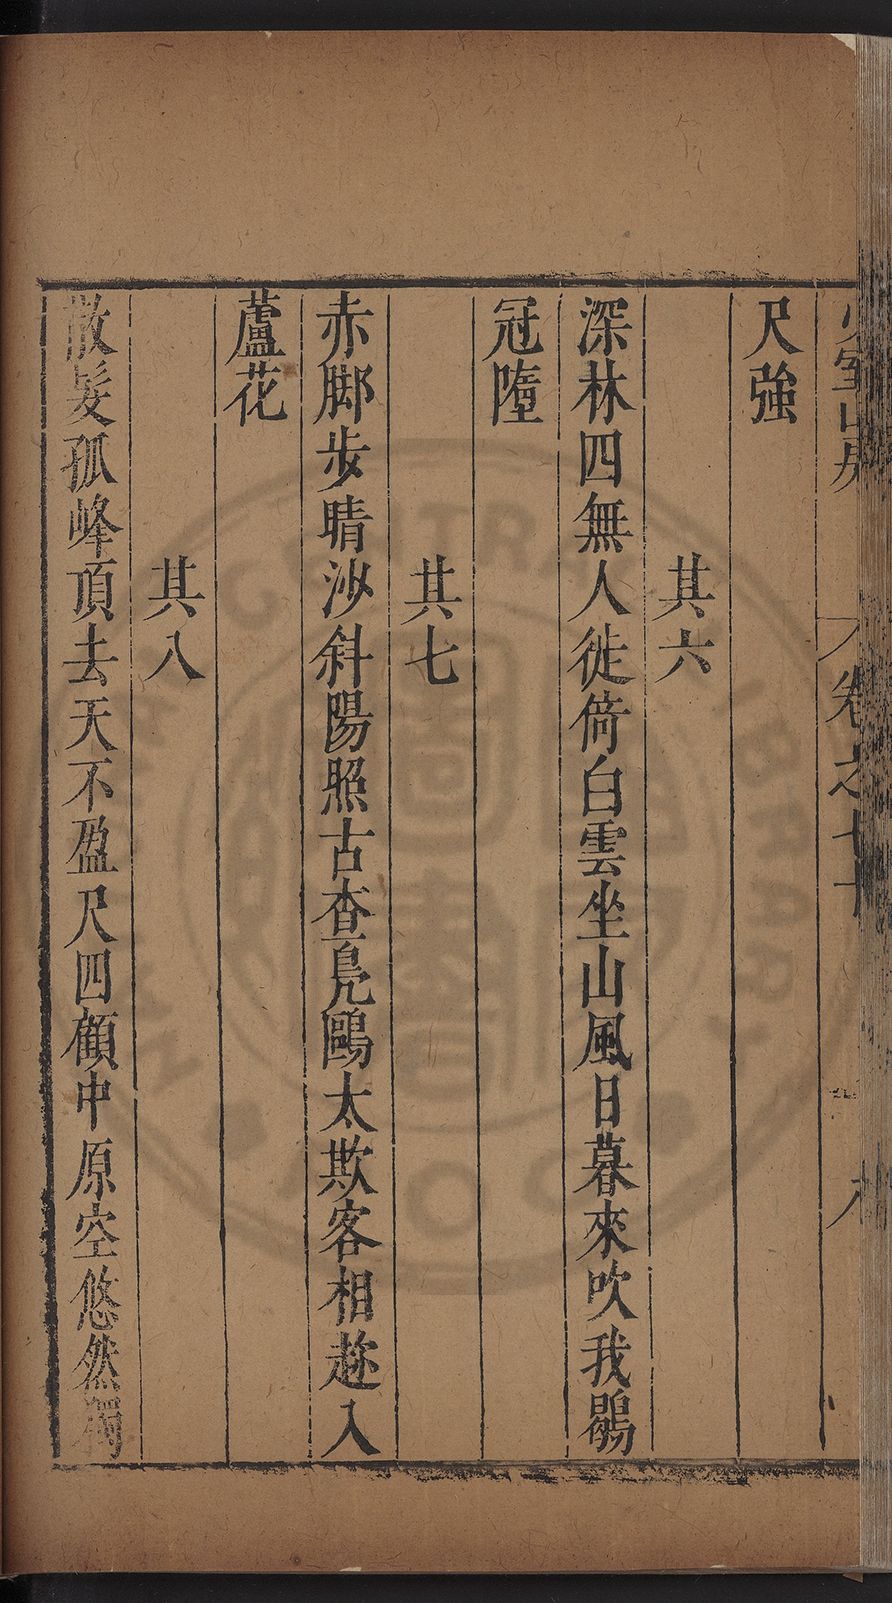 少室山房 卷之七十 八
尺強
其六
深林四無人徙倚白雲坐山風日暮來吹我鶡
冠墮
其七
赤脚步晴沙斜陽照古査鳧鷗太欺客相趂入
蘆花
其八
散髮孤峰頂去天不盈尺四顧中原空悠然獨